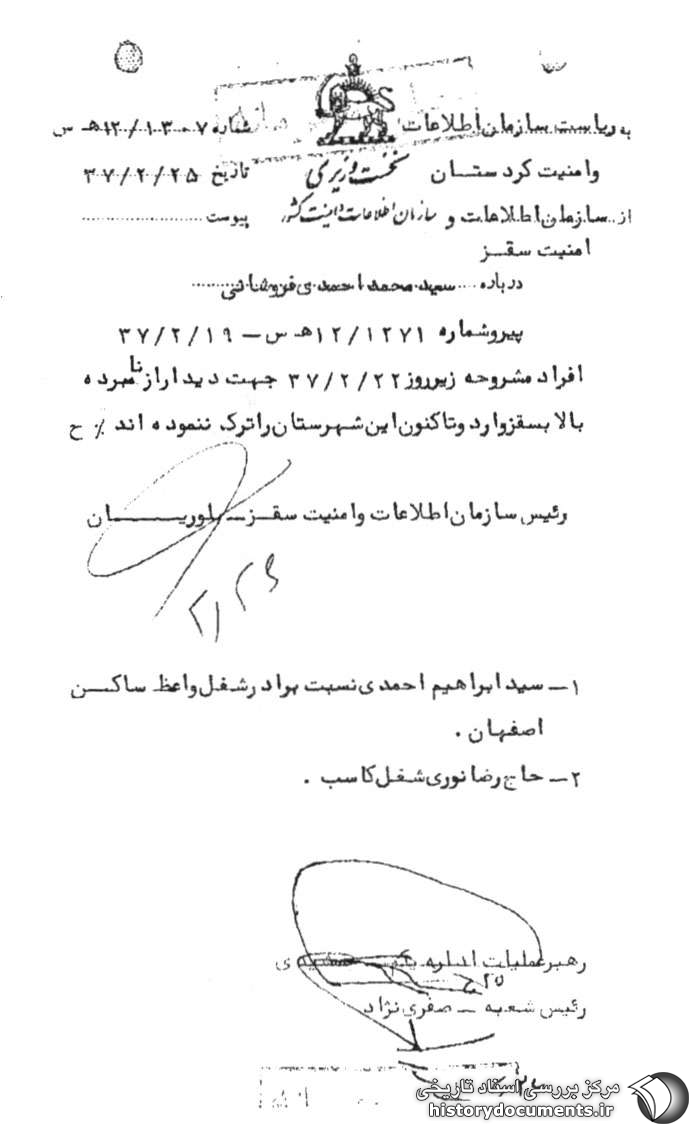 به ریاست سازمان اطلاعات شماره ۱۲۰/۱۳۰۷ هـ س
وامنیت کردستان نخست وزیری تاریخ ۳۷/۲/۲۵
از سازمان اطلاعات و سازمان اطلاعات و امنیت کشور پیوست
امنیت سقز
درباره سید محمد احمدی فروشانی
پیرو شماره ۱۲/۱۲۷۱ هـ س ـ ۳۷/۲/۱۹
افراد مشروحه زیر روز ۳۷/۲/۲۲ جهت دیدار از نامبرده
بالا بسقز وارد و تاکنون این شهرستان را ترک ننموده اند ٪ ح
رئیس سازمان اطلاعات وامنیت سقز ـ بلوریان
۱ـ سید ابراهیم احمدی نسبت برادر شغل واعظ ساکن
اصفهان .
۲ـ حاج رضا نوری شغل کاسب .
رهبر عملیات اداره یکم
رئیس شعبه ـ صفری نژاد
مرکز بررسی اسناد تاریخی
historydocuments.ir